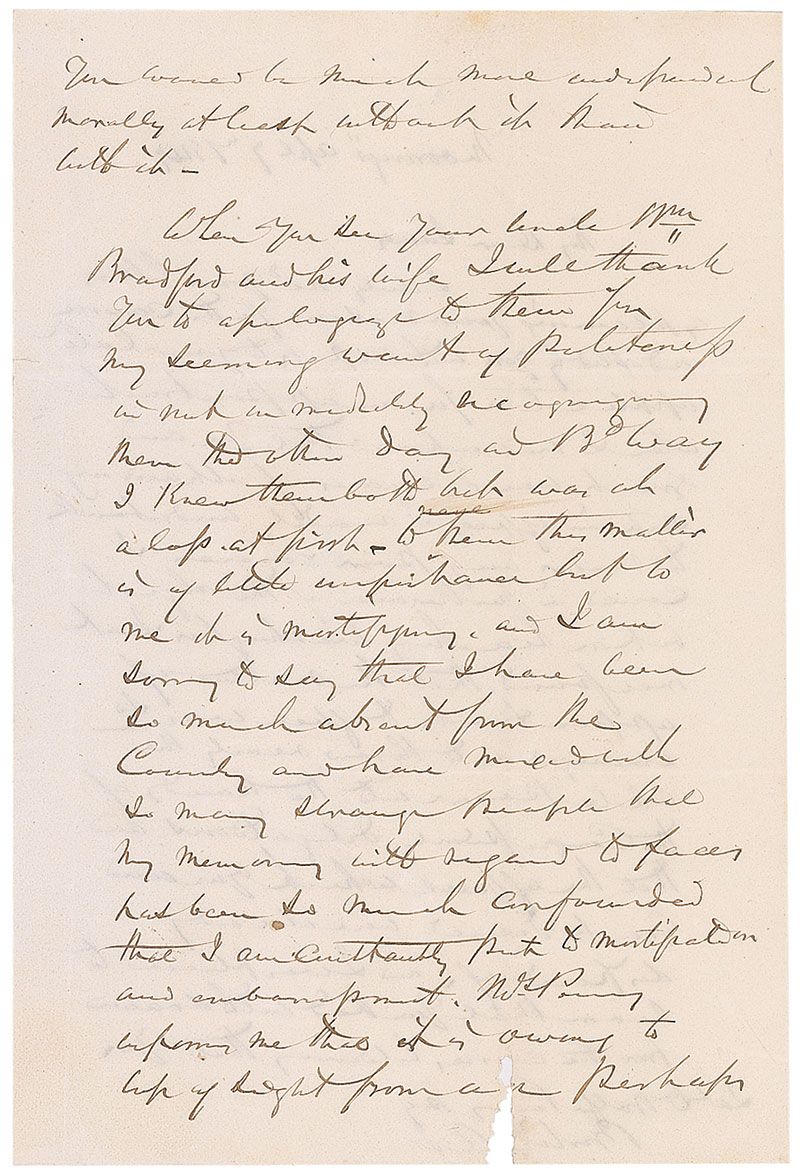 You would be much more independent
morally at least without it than
with it -
When you see your Uncle Wm
Bradford and his wife I will thank
you to apologize to them for
my seeming want of Politeness
in not immediately recognizing
them the other day in Bd Way
I knew them both but was at
a loss at first - to them this matter
is of little importance but to
me it is mortifying, and I am
sorry to say that I have been
so much absent from the
Country and have mixed with
so many strange people that
my memory with regard to faces
has been so much confounded
that I am constantly put to mortification
and embarrassment. Mrs Perry
informs me that it is owing to
loss of sight from age Perhaps